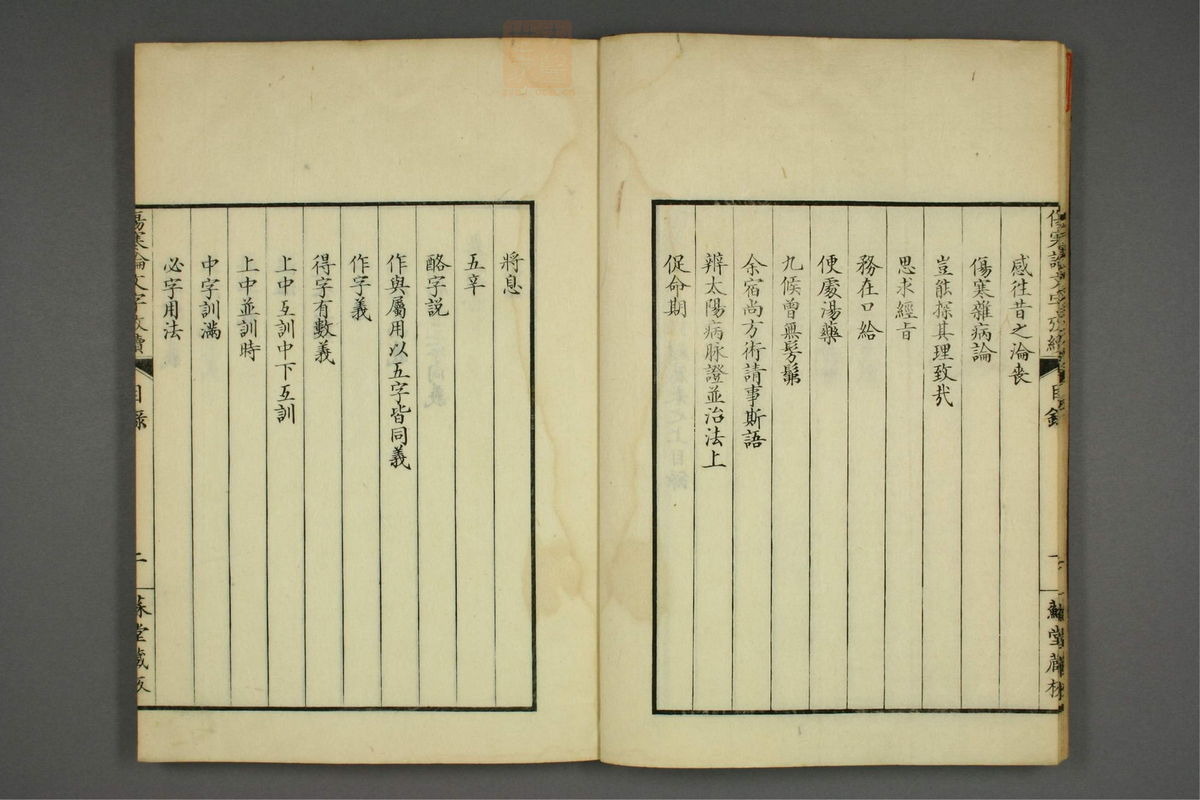 感往昔之淪喪
傷寒雜病論
豈能探其理致哉
思求經旨
務在口給
便處湯藥
九候曾無髣髴
余宿尚方術請事斯語
辨太陽病脉證並治法上
促命期
將息
五辛
酪字説
作與屬用以五字皆同義
作字義
得字有數義
上中互訓中下互訓
上中並訓時
中字訓滿
必字用法
傷寒論文字攷續
目録
二
蘇堂藏版